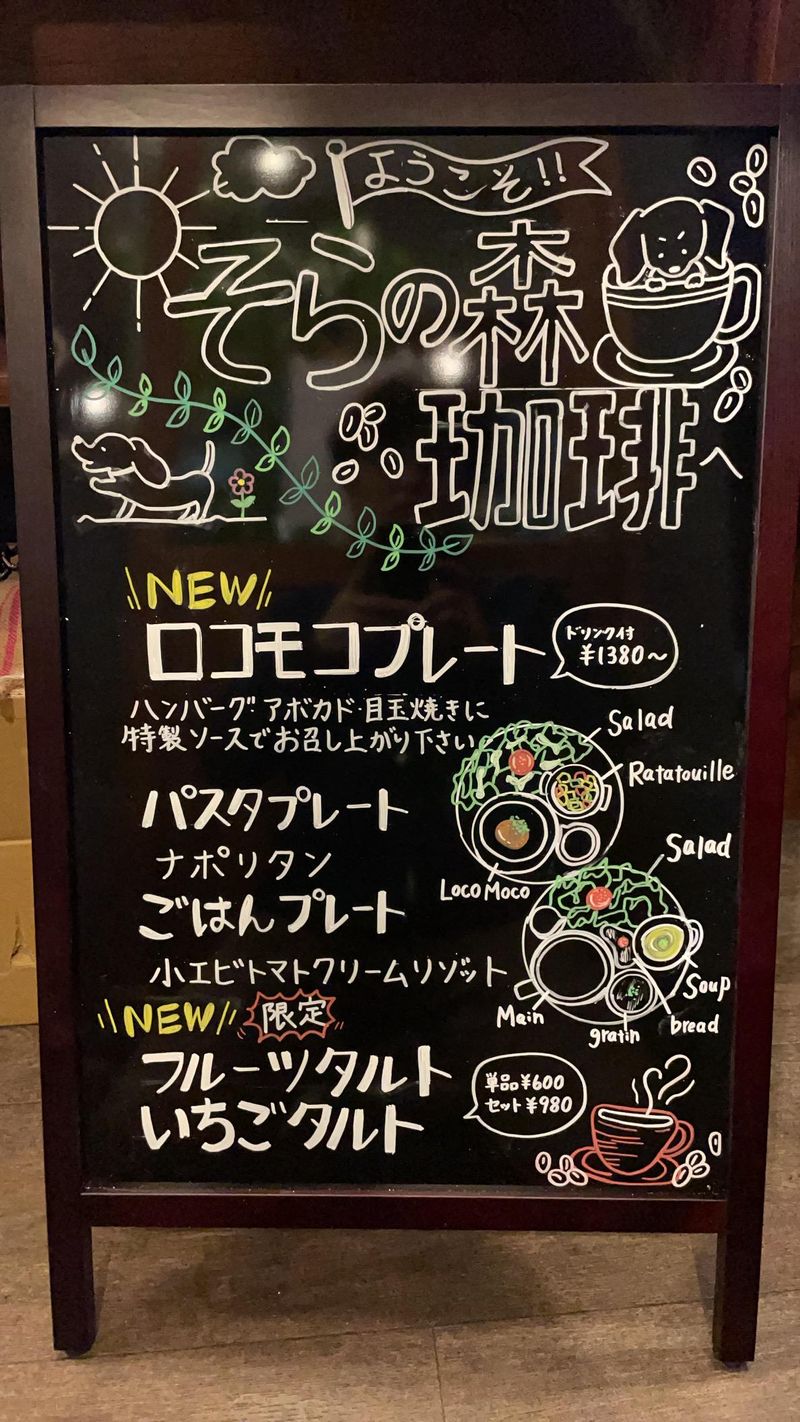 ようこそ!!
そらの森
珈琲へ
NEW
ロコモコプレート
ドリンク付
¥1380〜
ハンバーグ アボカド・目玉焼きに
特製ソースでお召し上がり下さい
Salad
Ratatouille
Loco Moco
パスタプレート
ナポリタン
ごはんプレート
小エビトマトクリームリゾット
Salad
Soup
bread
gratin
Main
NEW 限定
フルーツタルト
いちごタルト
単品¥600
セット¥980